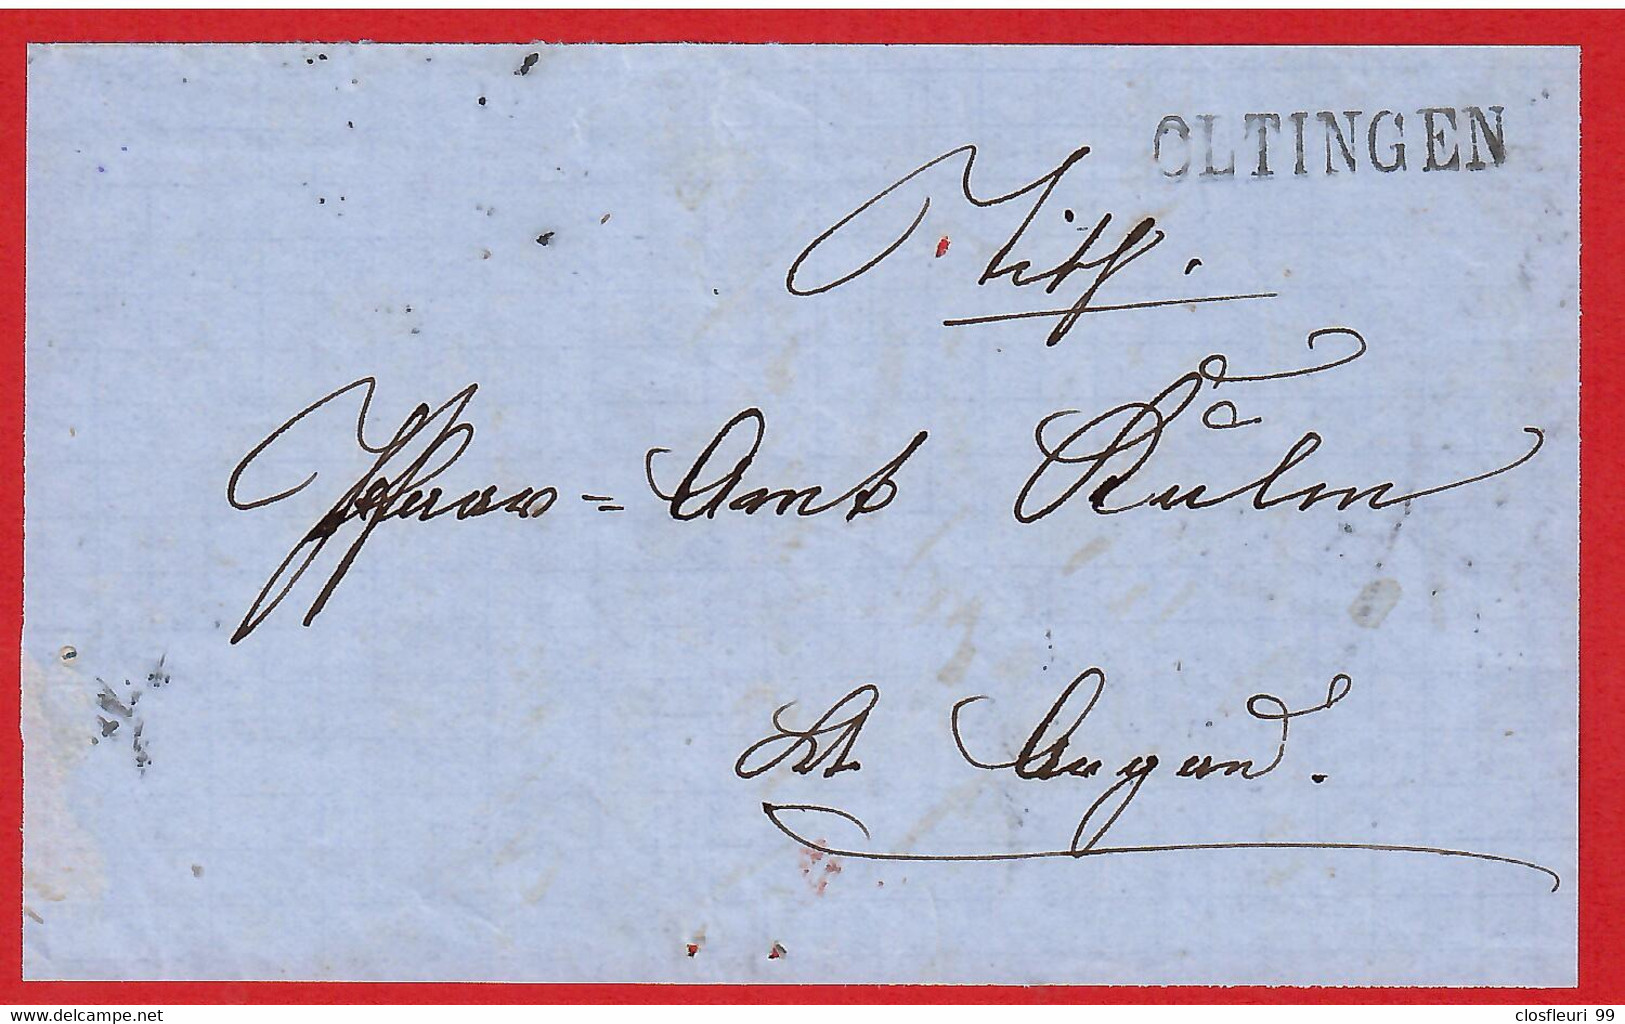 OLTINGEN
Tit.
Pfarr=Amt Kulm
Kt. Aargau.
delcampe.net
closfleuri 99